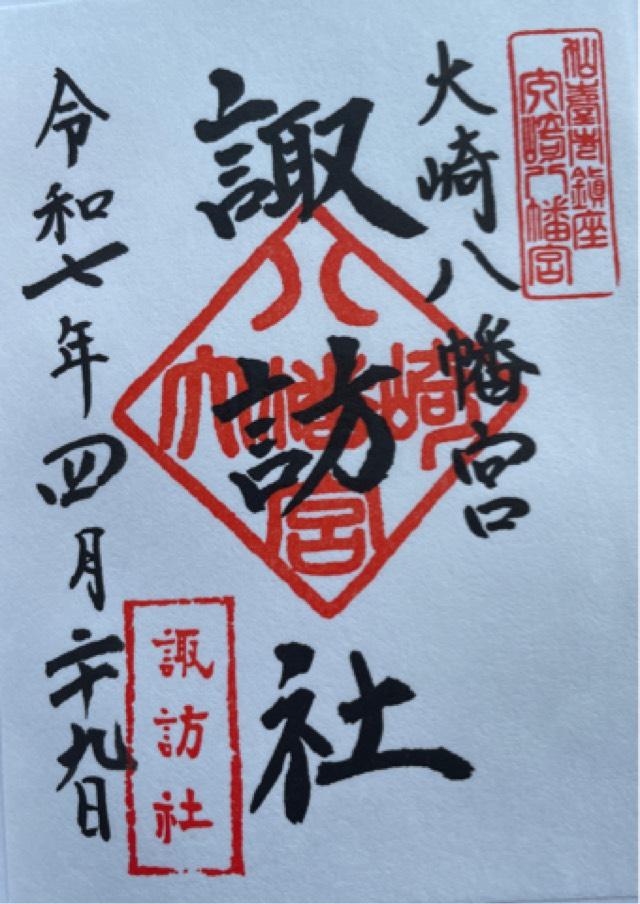 仙臺市鎮座
大崎八幡宮
大崎八幡宮
諏訪社
大崎八幡宮
諏訪社
令和七年四月二十九日